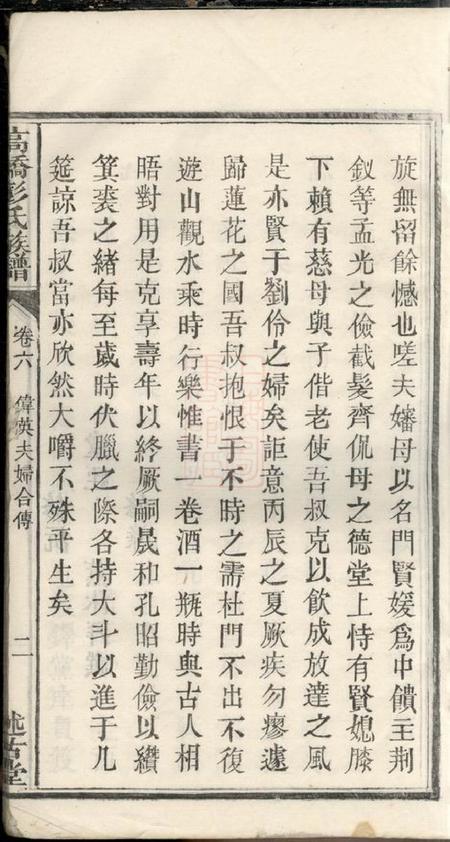 旋無留餘憾也嗟夫嬸母以名門賢媛爲中饋主荆
釵等孟光之儉截髮齊侃母之德堂上恃有賢媳膝
下賴有慈母與子偕老使吾叔克以飲成放達之風
是亦賢于劉伶之婦矣詎意丙辰之夏厥疾勿瘳遽
歸蓮花之國吾叔抱恨于不時之需杜門不出不復
遊山觀水乘時行樂惟書一卷酒一瓶時與古人相
晤對用是克享壽年以終厥嗣晟和孔昭勤儉以纘
箕裘之緒每至歲時伏臘之際各持大斗以進于几
筵諒吾叔當亦欣然大嚼不殊平生矣
高橋彭氏族譜
卷六
偉英夫婦合傳
二
述古堂